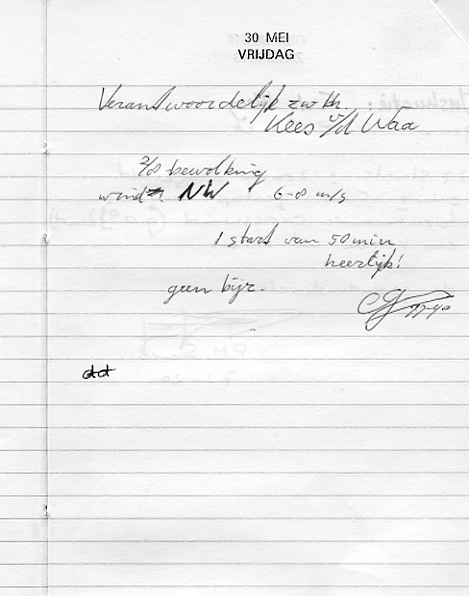 30 MEI
VRIJDAG
Verantwoordelijk zwth.
Kees v/d Waa
2/8 bewolking
wind NW 6-8 m/s
1 start van 50 min
heerlijk!
geen bijz.
97-40